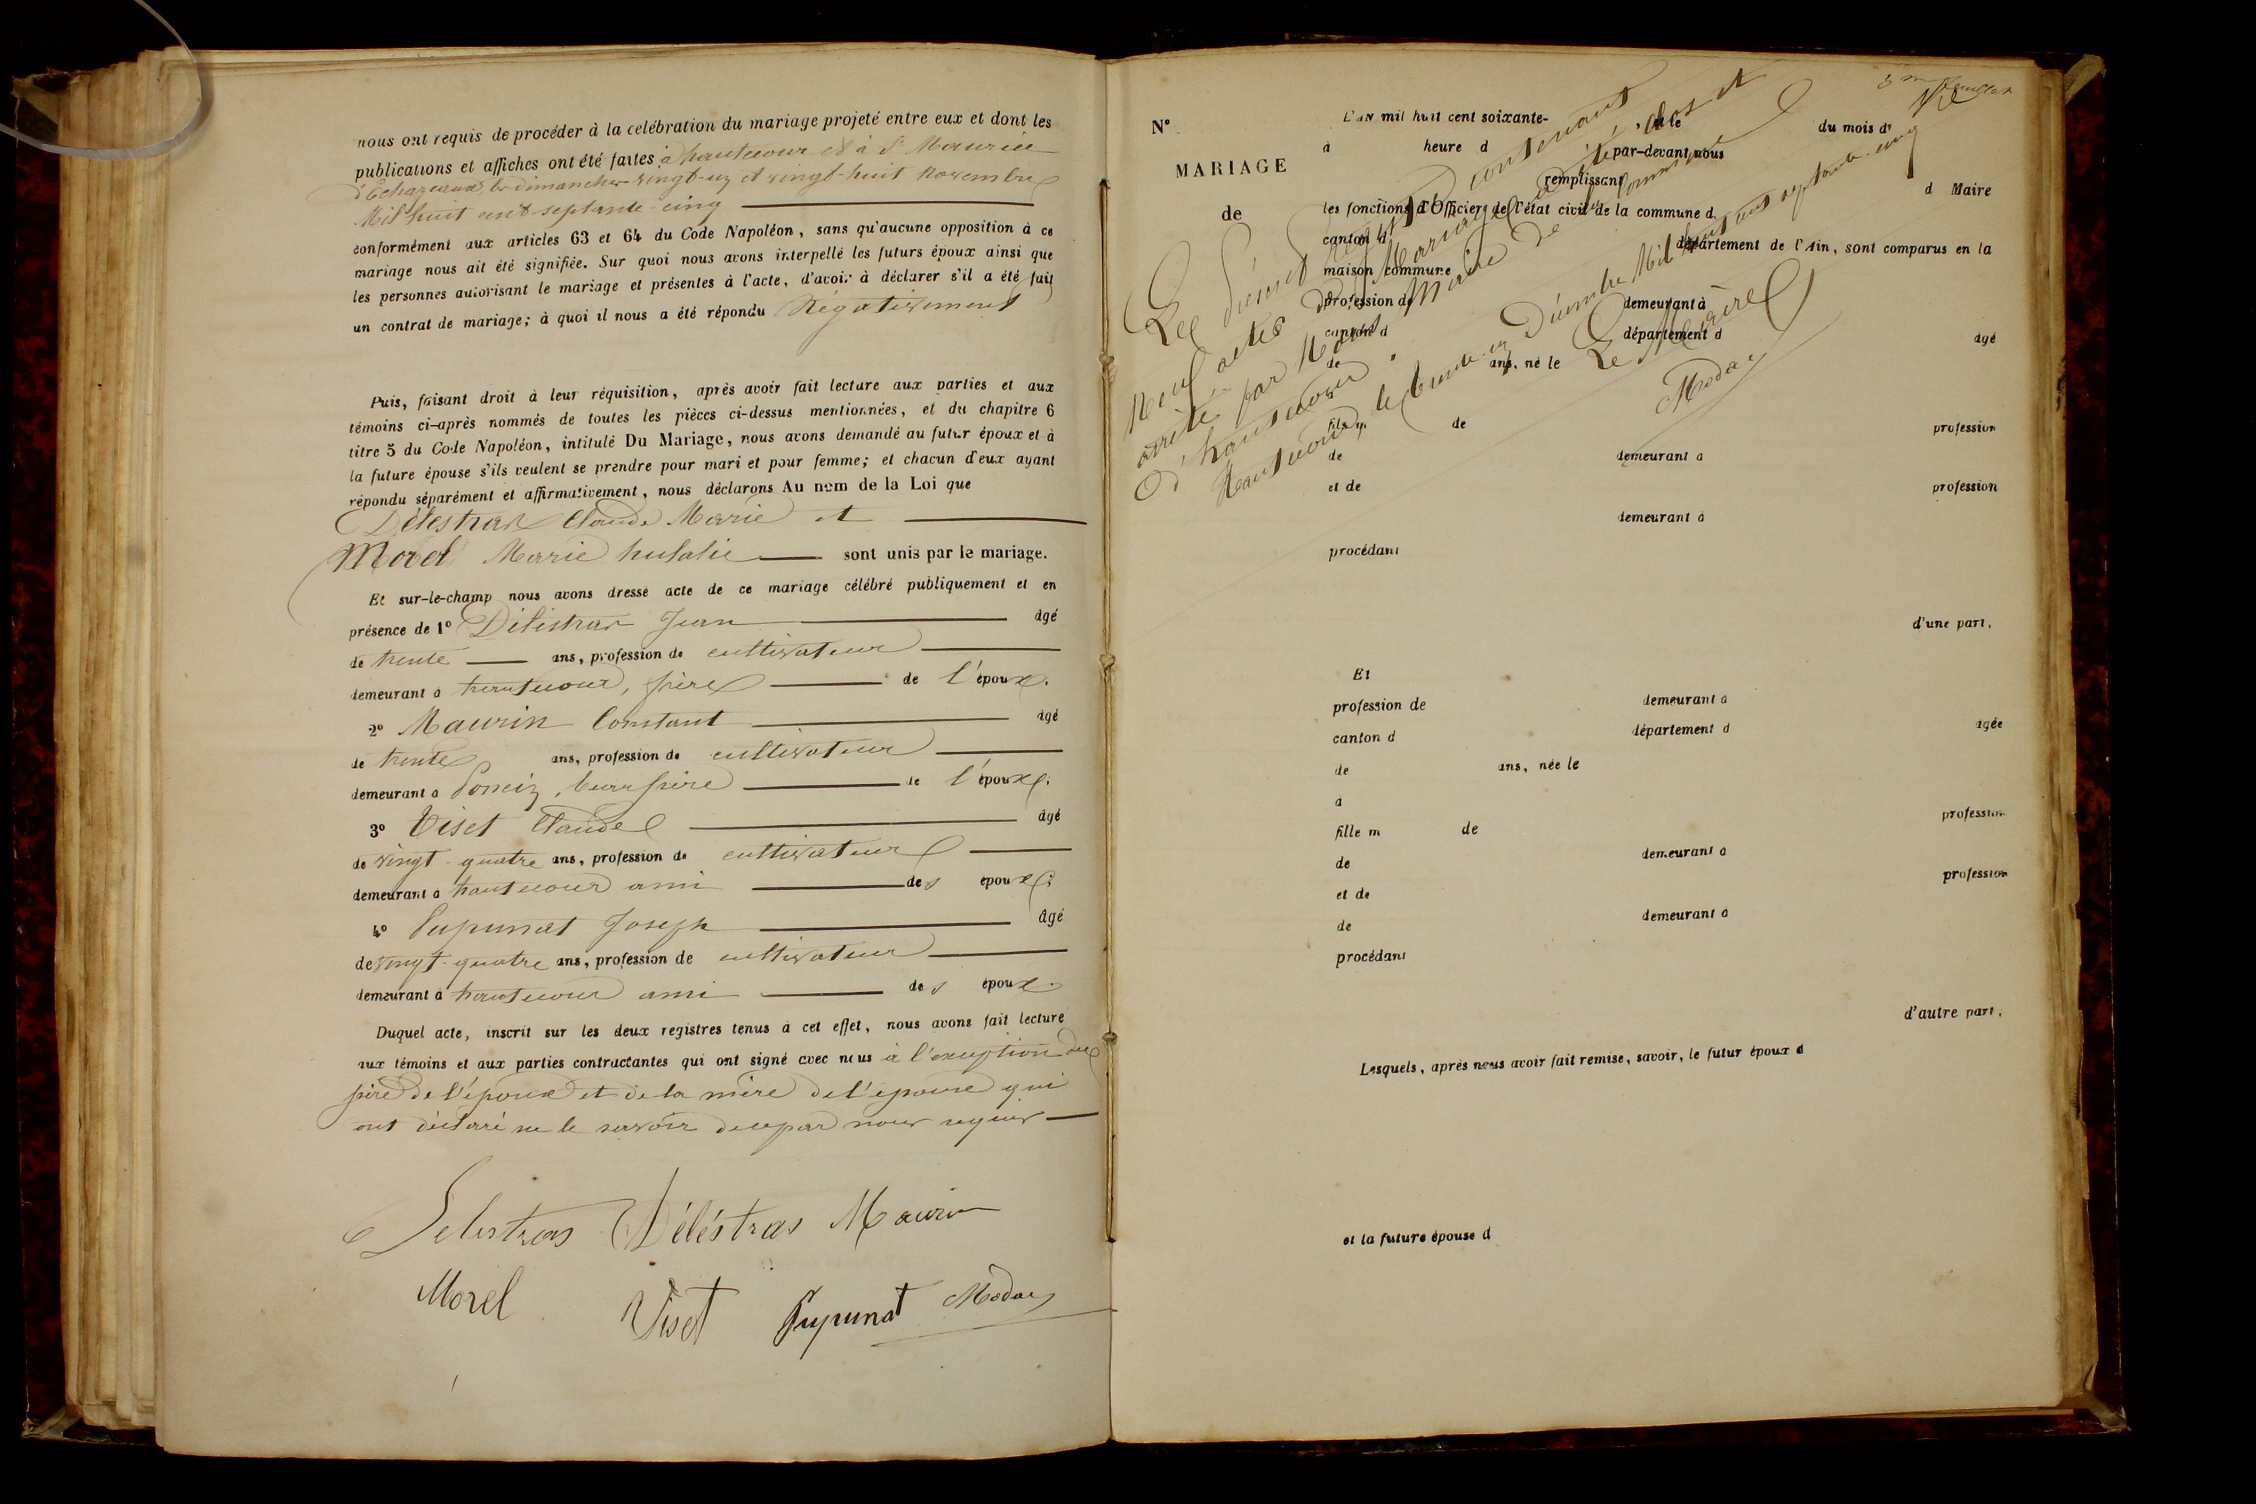 nous ont requis de procéder à la celébration du mariage projeté entre eux et dont les
publications et affiches ont été faites à hautecour et à St Maurice
d'Echazeaux les dimanches vingt-un et vingt-huit Novembre
Mil huit cent septante-cinq
conformément aux articles 63 et 64 du Code Napoléon, sans qu'aucune opposition à ce
mariage nous ait été signifiée. Sur quoi nous avons interpellé les futurs époux ainsi que
les personnes autorisant le mariage et présentes à l'acte, d'avoir à déclarer s'il a été fait
un contrat de mariage; à quoi il nous a été répondu Négativement
Puis, faisant droit à leur réquisition, après avoir fait lecture aux parties et aux
témoins ci-après nommés de toutes les pièces ci-dessus mentionnées, et du chapitre 6
titre 5 du Code Napoléon, intitulé Du Mariage, nous avons demandé au futur époux et à
la future épouse s'ils veulent se prendre pour mari et pour femme; et chacun d'eux ayant
répondu séparément et affirmativement, nous déclarons Au nom de la Loi que
Délestras Claude Marie et
Morel Marie hulalie sont unis par le mariage.
Et sur-le-champ nous avons dressé acte de ce mariage célébré publiquement et en
présence de 1° Délestras Jean âgé
de trente ans, profession de cultivateur
demeurant à hautecour, frère de l'époux.
2° Maurin Constant âgé
de trente ans, profession de cultivateur
demeurant à Poncin, beau frère de l'époux.
3° Viset Claude âgé
de vingt-quatre ans, profession de cultivateur
demeurant à hautecour ami des époux.
4° Pupunat Joseph âgé
de vingt-quatre ans, profession de cultivateur
demeurant à hautecour ami des époux.
Duquel acte, inscrit sur les deux registres tenus à cet effet, nous avons fait lecture
aux témoins et aux parties contractantes qui ont signé avec nous à l'exception du
père de l'époux et de la mère de l'épouse qui
ont déclaré ne le savoir de ce par nous requis
Delestras Déléstras Maurin
Morel Viset Pupunat Moday
N°
MARIAGE
de
L'AN mil huit cent soixante- , le du mois d'
à heure d par-devant nous
remplissant d Maire
les fonctions d'Officier de l'état civil de la commune d
canton d département de l'Ain, sont comparus en la
maison commune
profession de demeurant à
canton d département d âgé
de ans, né le
fils m de profession
de demeurant à
et de profession
demeurant à
procédant
d'une part,
Et
profession de demeurant à
canton d département d âgée
de ans, née le
à
fille m de profession
de demeurant à
et de profession
de demeurant à
procédant
d'autre part,
Lesquels, après nous avoir fait remise, savoir, le futur époux d
et la future épouse d
Le présent Registre contenant
Neuf actes de Mariage a été clos et
arrêté par Nous Maire de la Commune
d'hautecour.
Hautecour, le trente-un Décembre Mil huit cent septante-cinq
Le Maire
Moday